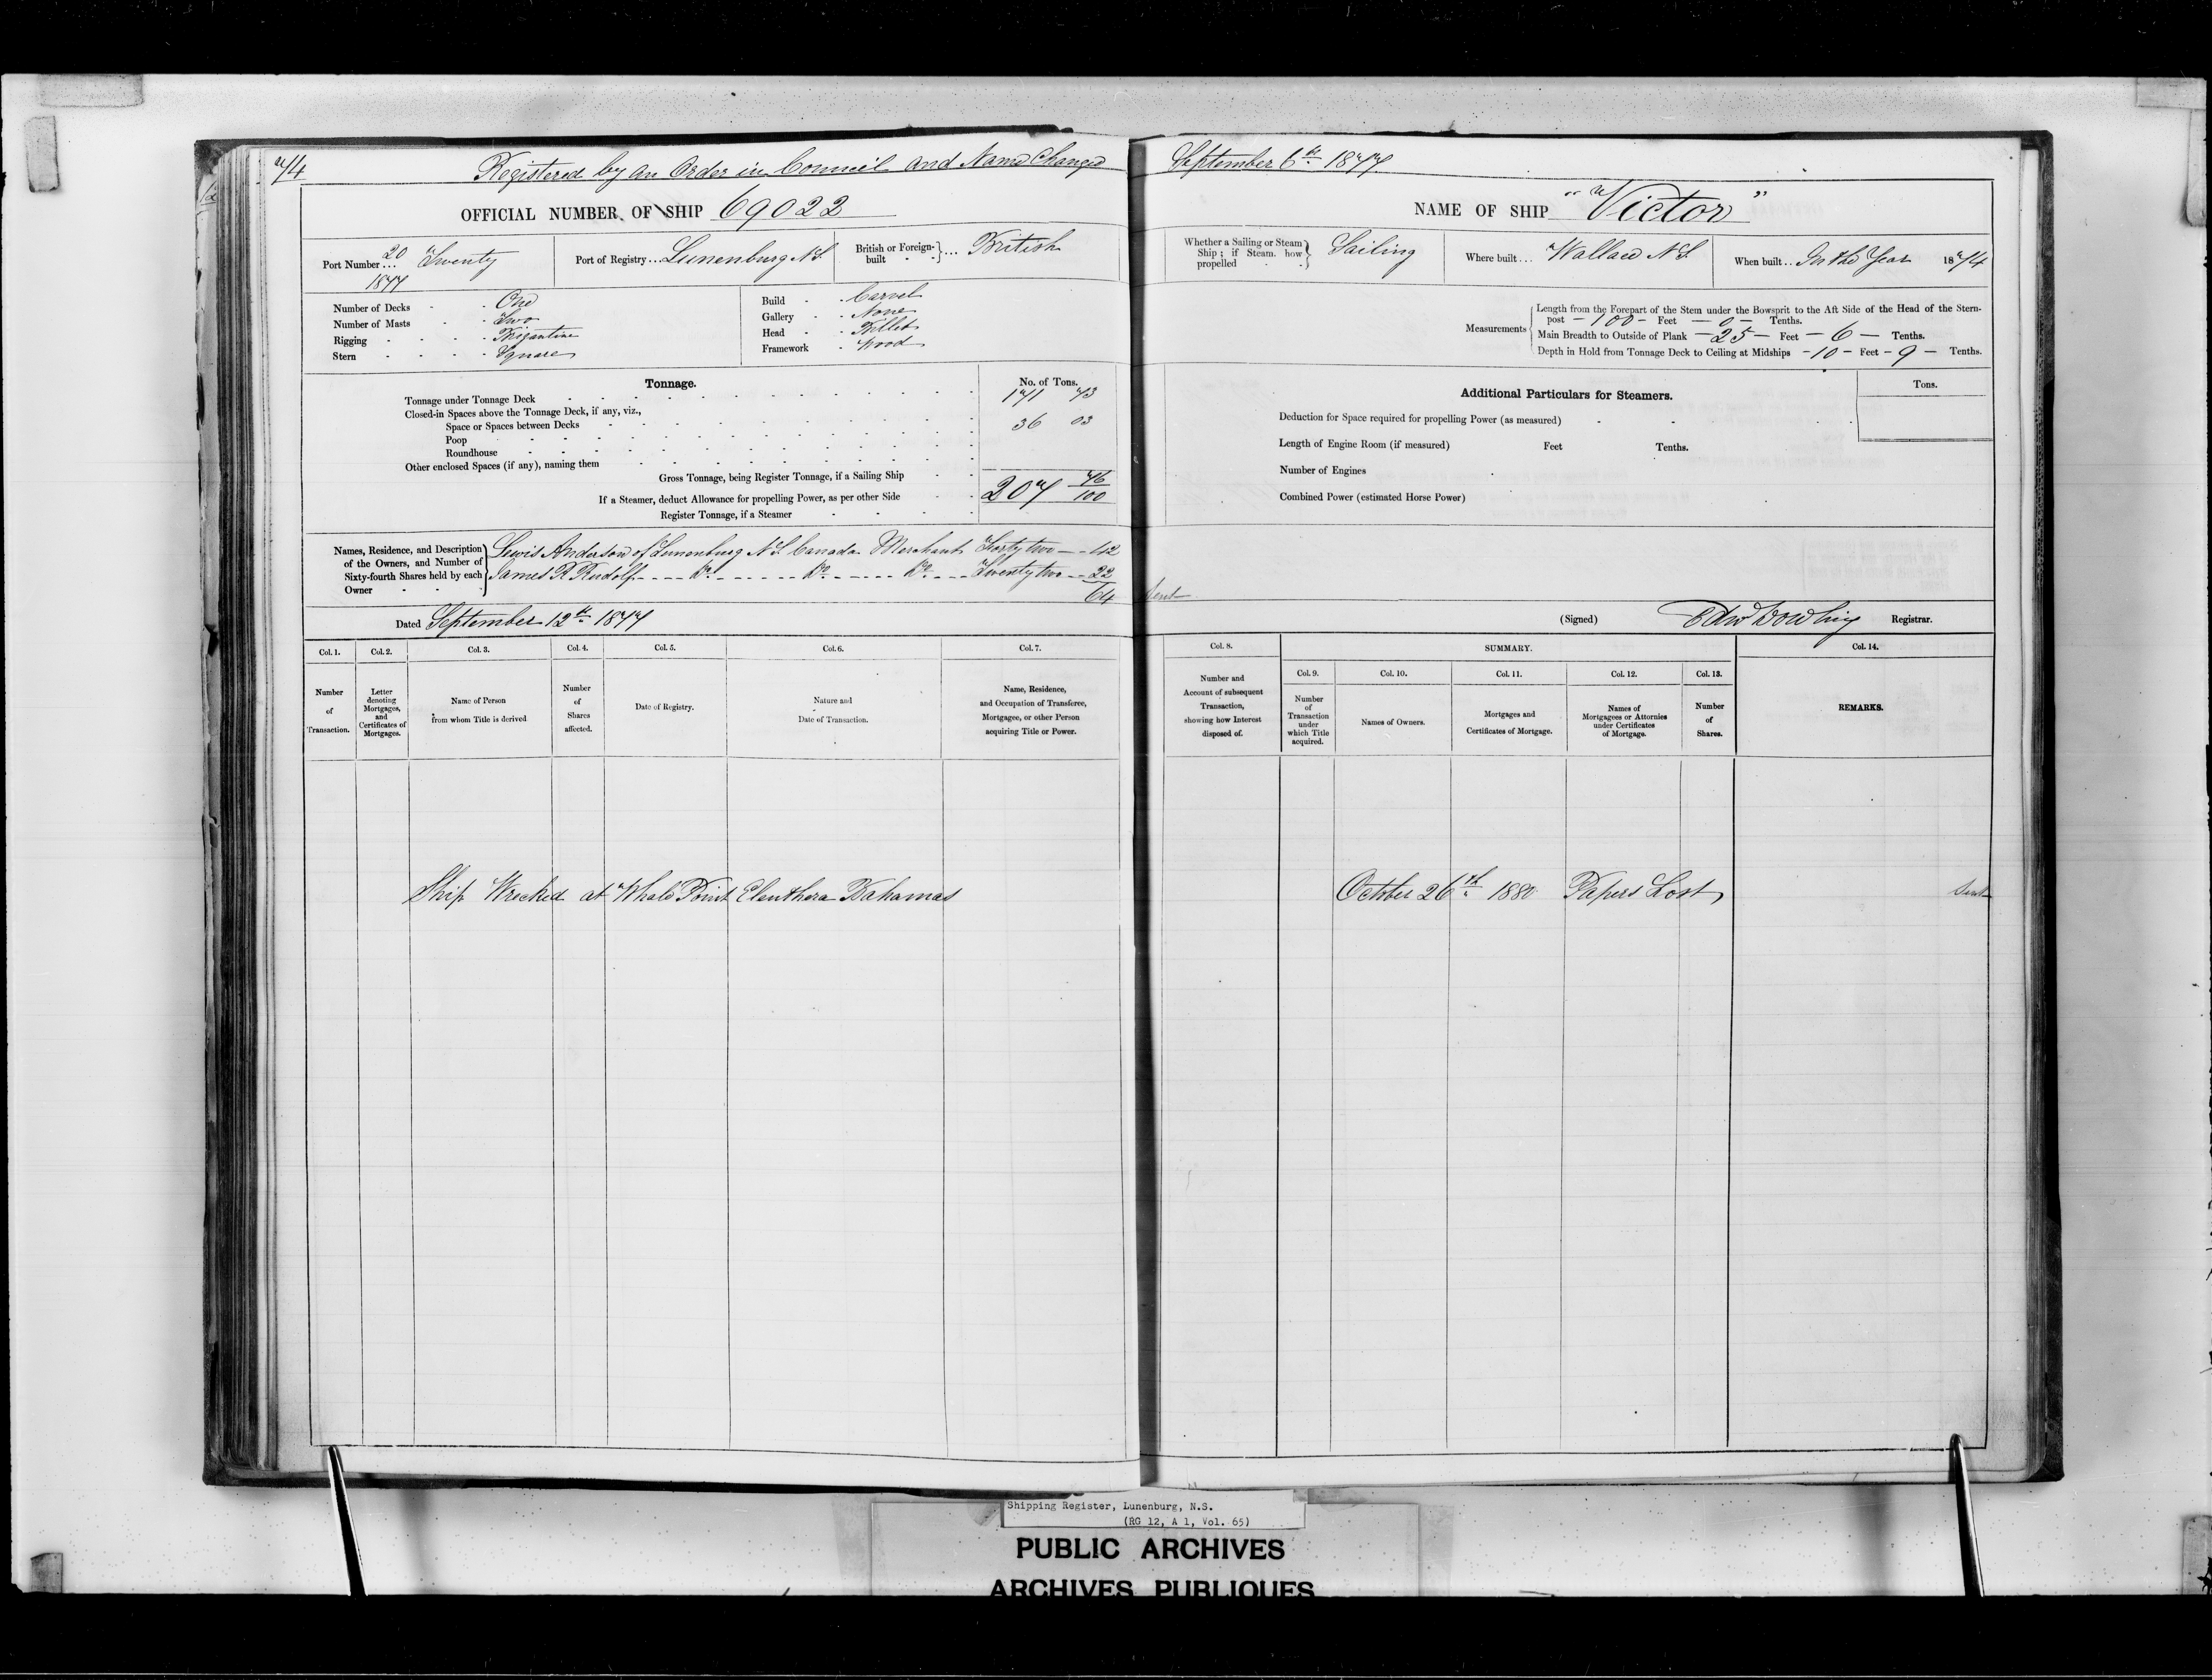 74
Registered by an Order in Council and Name Changed September 6th 1877
OFFICIAL NUMBER OF SHIP 69022
NAME OF SHIP "Victor"
Port Number ... 20 Twenty
1877
Port of Registry ... Lunenburg N.S.
British or Foreign-built } ... British
Whether a Sailing or Steam Ship; if Steam. how propelled } Sailing
Where built ... Wallace N.S.
When built .. In the Year 1874
Number of Decks - - One
Number of Masts - - Two
Rigging - - - - Brigantine
Stern - - - - Square
Build - - Carvel
Gallery - - None
Head - - Billet
Framework - Wood
Measurements
Length from the Forepart of the Stem under the Bowsprit to the Aft Side of the Head of the Stern-
post - 100 - Feet - 0 - Tenths.
Main Breadth to Outside of Plank - 25 - Feet - 6 - Tenths.
Depth in Hold from Tonnage Deck to Ceiling at Midships - 10 - Feet - 9 - Tenths.
Tonnage.
No. of Tons.
Tonnage under Tonnage Deck 171 43
Closed-in Spaces above the Tonnage Deck, if any, viz.,
Space or Spaces between Decks 36 03
Poop
Roundhouse
Other enclosed Spaces (if any), naming them
Gross Tonnage, being Register Tonnage, if a Sailing Ship
207 46/100
If a Steamer, deduct Allowance for propelling Power, as per other Side
Register Tonnage, if a Steamer
Additional Particulars for Steamers.
Tons.
Deduction for Space required for propelling Power (as measured)
Length of Engine Room (if measured) Feet Tenths.
Number of Engines
Combined Power (estimated Horse Power)
Names, Residence, and Description
of the Owners, and Number of
Sixty-fourth Shares held by each
Owner
Lewis Anderson of Lunenburg N.S. Canada Merchant Forty two - - 42
James R Rudolf - - - - Do - - - - - Do - - - - Do - - - Twenty two - - 22
64 Sent
Dated September 12th 1877
(Signed) Edw Dowling Registrar.
Col. 1.
Col. 2.
Col. 3.
Col. 4.
Col. 5.
Col. 6.
Col. 7.
Col. 8.
SUMMARY.
Col. 14.
Col. 9.
Col. 10.
Col. 11.
Col. 12.
Col. 13.
Number
of
Transaction.
Letter
denoting
Mortgages,
and
Certificates of
Mortgages.
Name of Person
from whom Title is derived
Number
of
Shares
affected.
Date of Registry.
Nature and
Date of Transaction.
Name, Residence,
and Occupation of Transferee,
Mortgagee, or other Person
acquiring Title or Power.
Number and
Account of subsequent
Transaction,
showing how Interest
disposed of.
Number
of
Transaction
under
which Title
acquired.
Names of Owners.
Mortgages and
Certificates of Mortgage.
Names of
Mortgagees or Attornies
under Certificates
of Mortgage.
Number
of
Shares.
REMARKS.
Ship Wrecked at Whale Point Eleuthera Bahamas October 26th 1880 Papers Lost Sent
Shipping Register, Lunenburg, N.S.
(RG 12, A 1, Vol. 65)
PUBLIC ARCHIVES
ARCHIVES PUBLIQUES